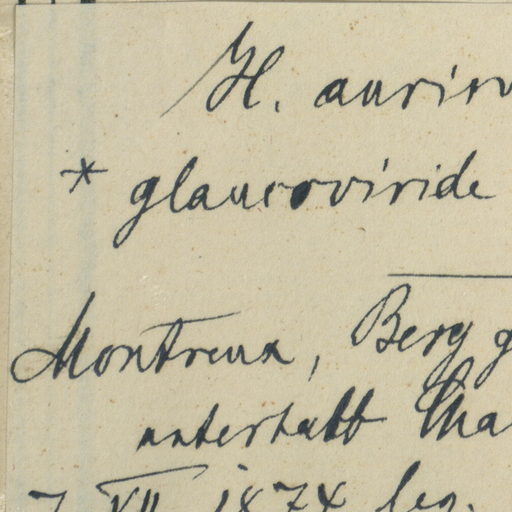 H. auriru
* glaucoviride
Montreux, Berg g
unterhalb Cha
7. VII. 1874 leg.